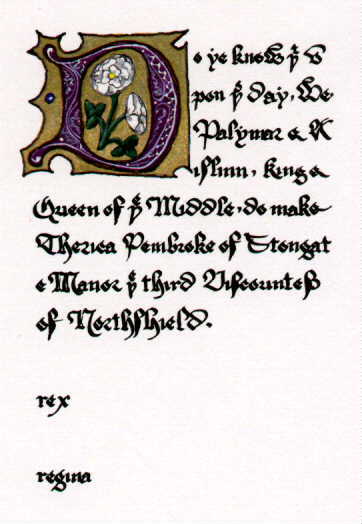 Do ye know yͭ V
pon yͤ day, We
Palymar & A
islinn, King &
Queen of yͤ Middle, do make
Therica Pembroke of Stongat
e Manor yͤ third Viscounteß
of Northſhield.
rex
regina